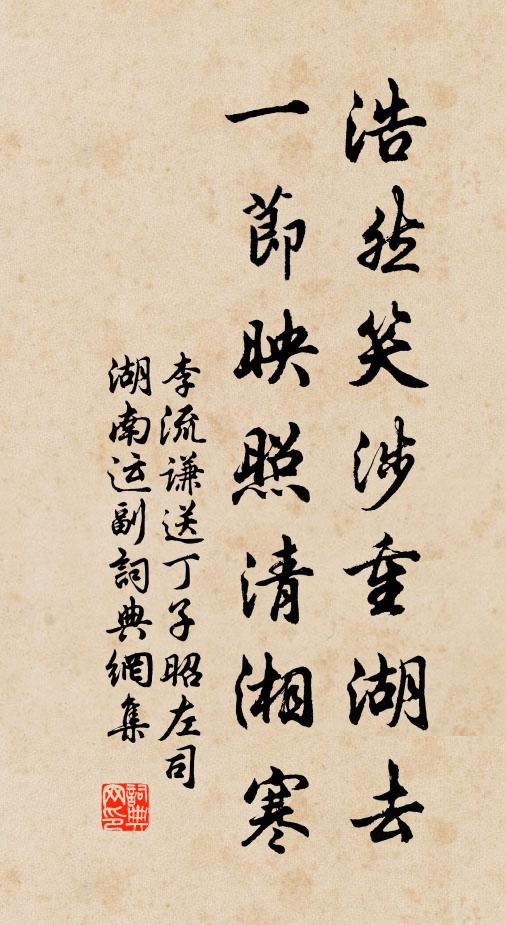 浩然笑涉重湖去
一節映照清湘寒
李流謙送丁子昭左司
湖南运副詞典網集
詞典
网印